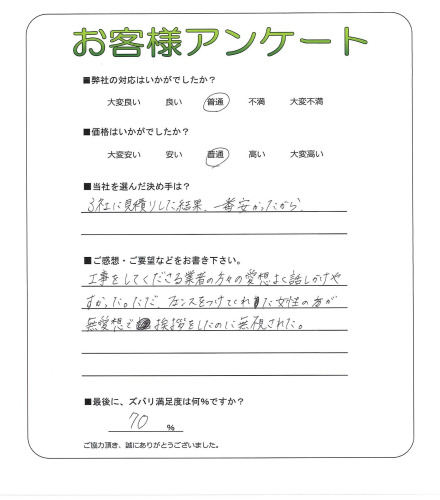 お客様アンケート
■弊社の対応はいかがでしたか?
大変良い 良い 普通 不満 大変不満
■価格はいかがでしたか?
大変安い 安い 普通 高い 大変高い
■当社を選んだ決め手は?
3社に見積りした結果、一番安かったから。
■ご感想・ご要望などをお書き下さい。
工事をしてくださる業者の方々の愛想よく話しかけや
すかった。ただ、センスをつけてくれた女性の方が
無愛想で挨拶をしたのに無視された。
■最後に、ズバリ満足度は何%ですか?
70 %
ご協力頂き、誠にありがとうございました。